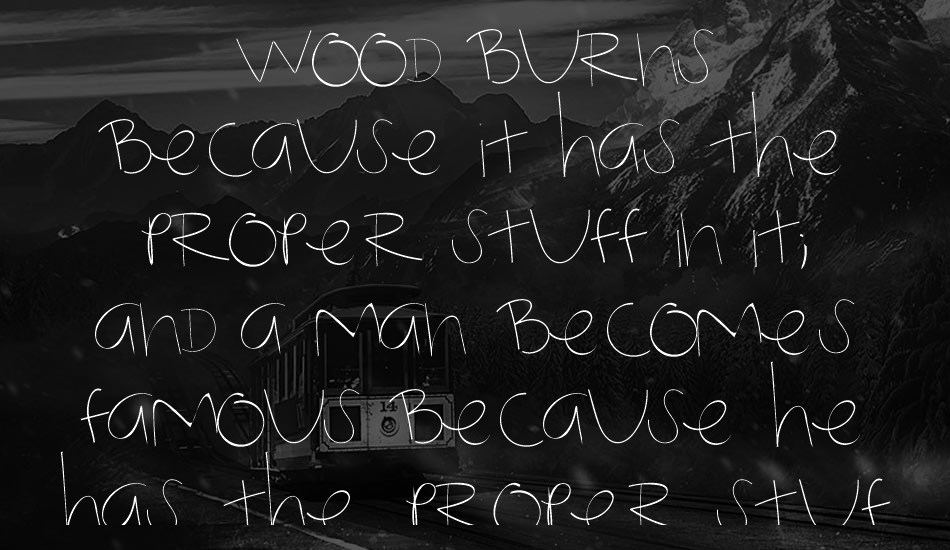 WOOD BURNS
BECAUSE it has the
PROPER STUFF in it;
and a man BECOMES
FAMOUS BECAUSE he
has the PROPER STUF
14